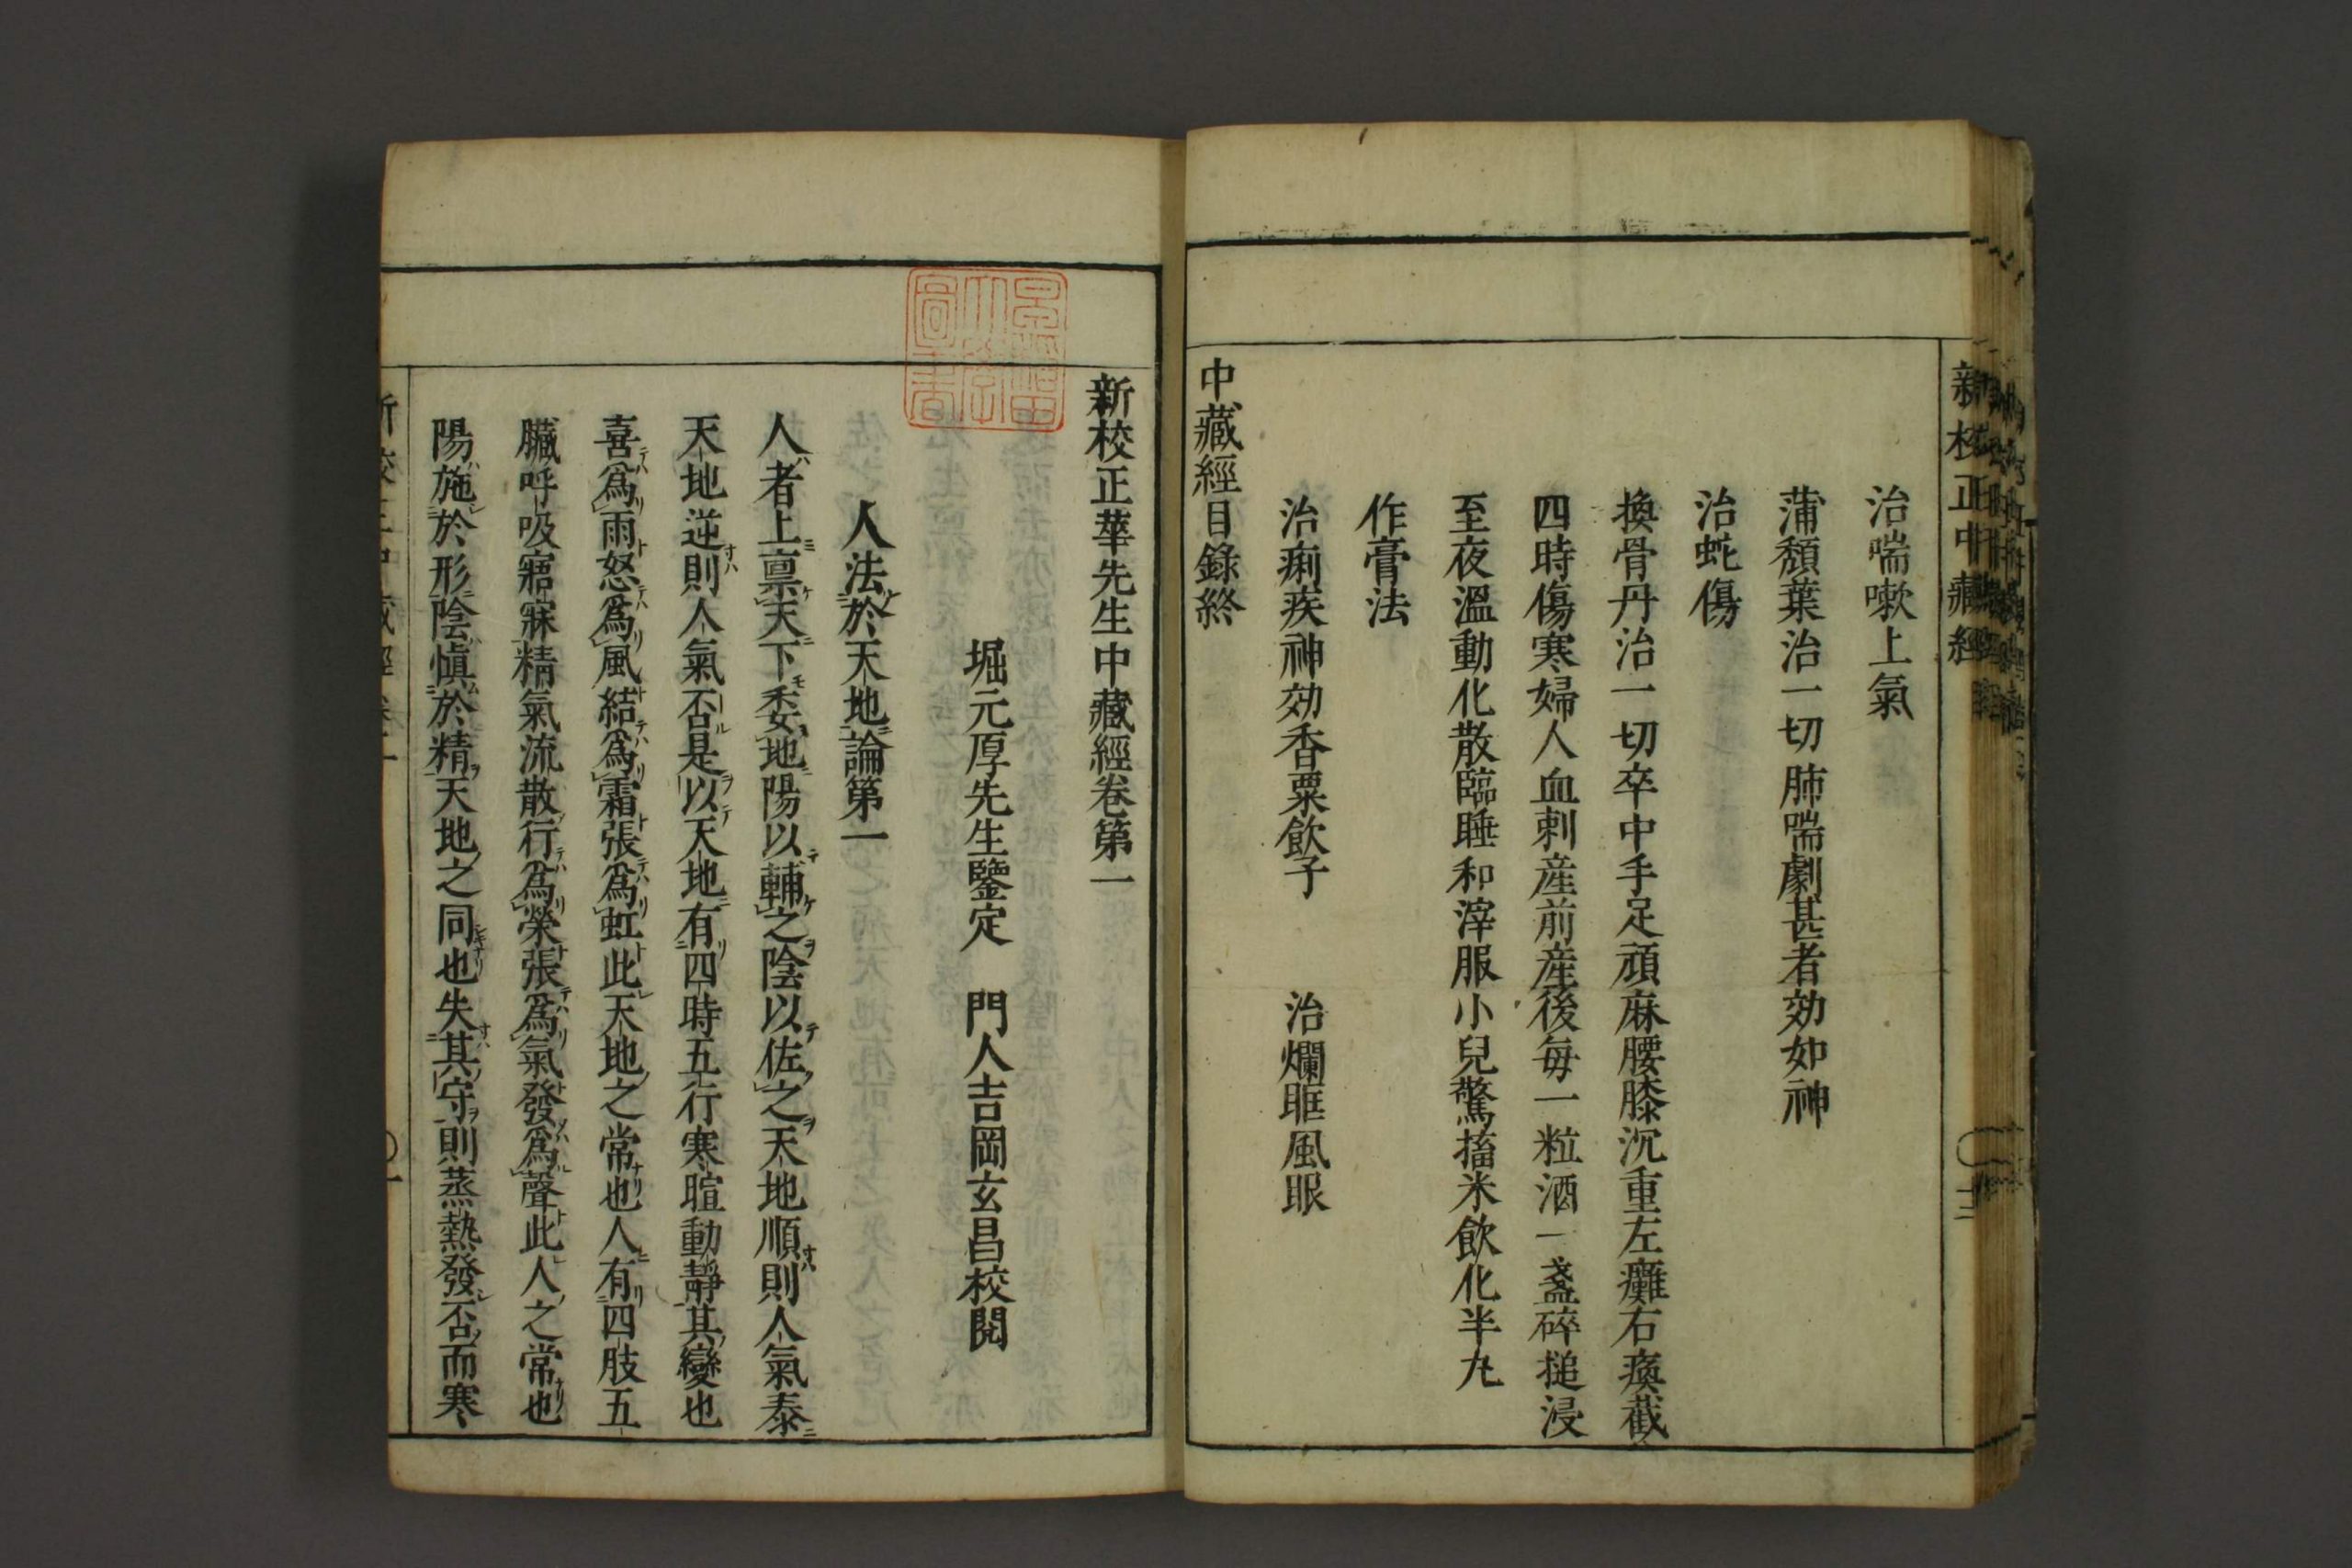 新校正中藏經
治喘嗽上氣
蒲頹葉治一切肺喘劇甚者効如神
治蛇傷
換骨丹治一切卒中手足頑麻腰膝沉重左癱右瘓截
四時傷寒婦人血刺産前産後每一粒酒一盞碎搥浸
至夜溫動化散臨睡和滓服小兒驚搐米飲化半丸
作膏法
治痢疾神効香粟飲子　治爛眶風眼
中藏經目錄終
新校正華先生中藏經卷第一
堀元厚先生鑒定　門人吉岡玄昌校閱
人法於天地論第一
人者上禀天下委地陽以輔之陰以佐之天地順則人氣泰
天地逆則人氣否是以天地有四時五行寒暄動靜其變也
喜爲雨怒爲風結爲霜張爲虹此天地之常也人有四肢五
臟呼吸寤寐精氣流散行爲榮張爲氣發爲聲此人之常也
陽施於形陰愼於精天地之同也失其守則蒸熱發否而寒